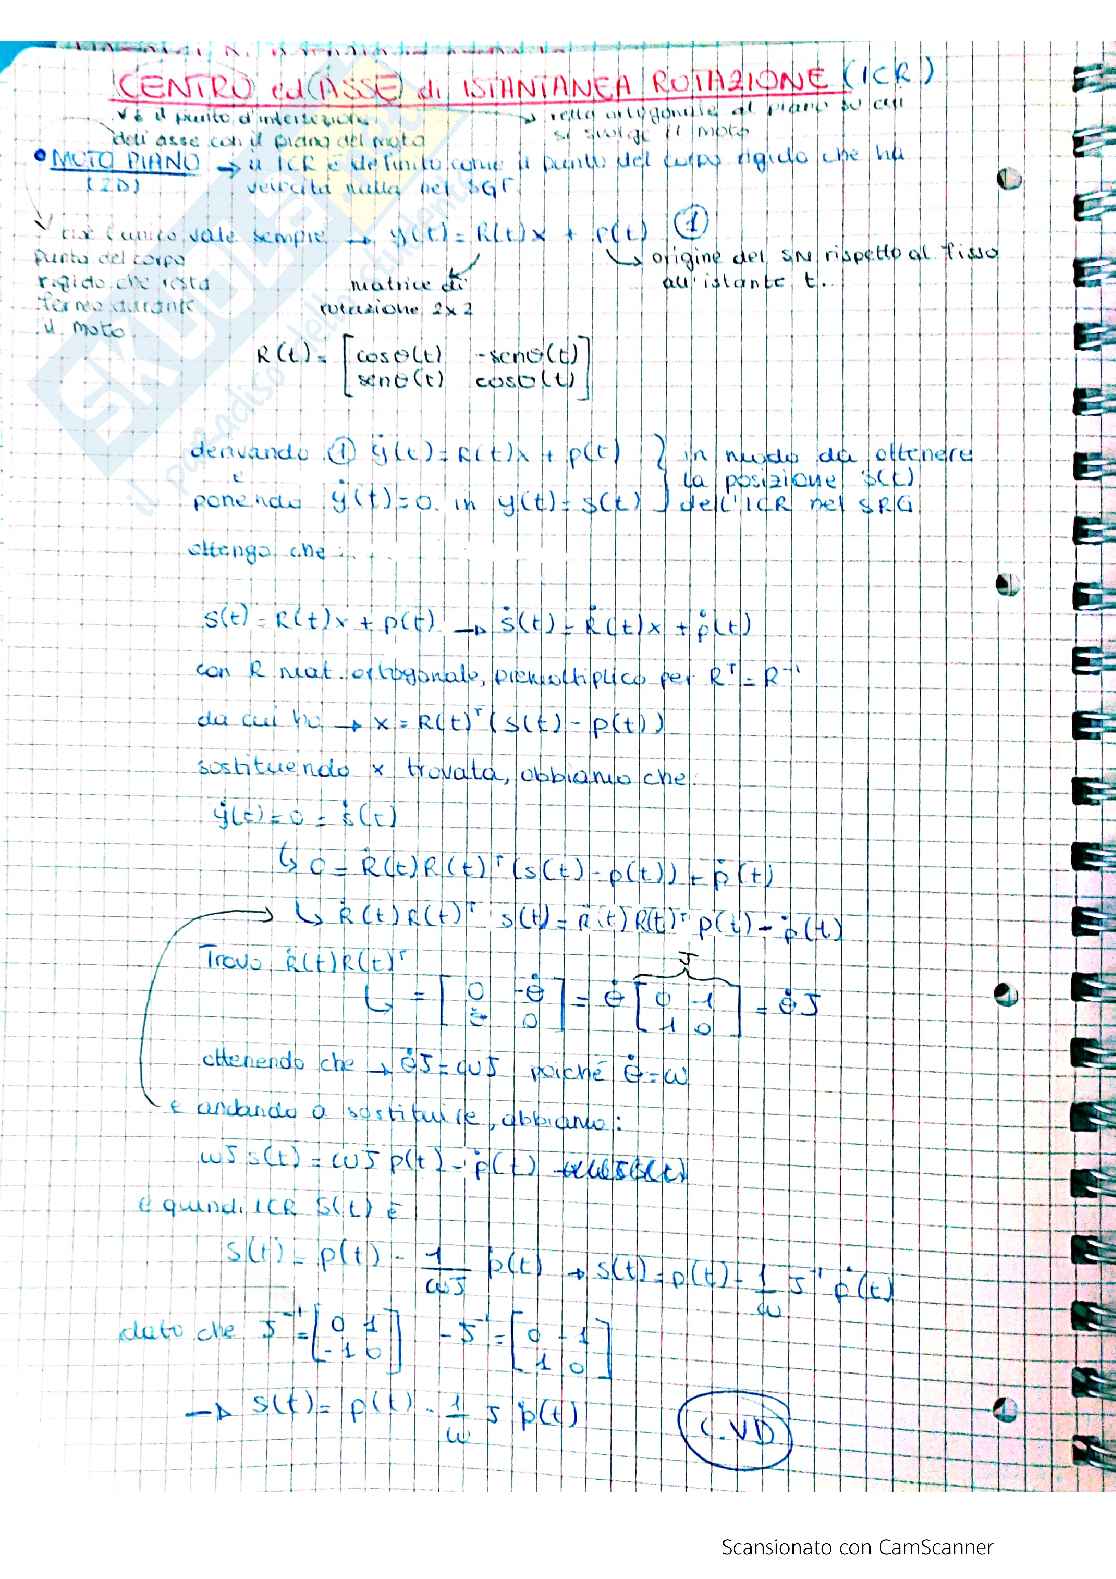 CENTRO ed (ASSE) di ISTANTANEA ROTAZIONE (ICR)
è il punto d'intersezione
dell'asse con il piano del moto
retta ortogonale al piano su cui
si svolge il moto
• MOTO PIANO → il ICR è definito come il punto del corpo rigido che ha
(2D) velocità nulla nel SGF
cioè l'unico punto del corpo rigido che resta fermo durante il moto
vale sempre → y(t) = R(t)x + p(t) ①
origine del SM rispetto al fisso
all'istante t...
matrice di
rotazione 2x2
R(t) = [cosθ(t) -senθ(t)]
[senθ(t) cosθ(t)]
derivando ① ẏ(t) = Ṙ(t)x + ṗ(t) } in modo da ottenere
e la posizione s(t)
ponendo ẏ(t) = 0 in y(t) = s(t) } dell'ICR nel SRG
ottengo che...
s(t) = R(t)x + p(t) → ṡ(t) = Ṙ(t)x + ṗ(t)
con R mat. ortogonale, premoltiplico per Rᵀ = R⁻¹
da cui ho → x = R(t)ᵀ(s(t) - p(t))
sostituendo x trovata, abbiamo che:
ẏ(t) = 0 = ṡ(t)
↳ 0 = Ṙ(t)R(t)ᵀ(s(t) - p(t)) + ṗ(t)
↳ Ṙ(t)R(t)ᵀ s(t) = Ṙ(t)R(t)ᵀ p(t) - ṗ(t)
Trovo Ṙ(t)R(t)ᵀ
J
↳ = [0 -θ̇] = θ̇ [0 -1] = θ̇J
[θ̇ 0] [1 0]
ottenendo che → θ̇J = ωJ poiché θ̇ = ω
e andando a sostituire, abbiamo:
ωJ s(t) = ωJ p(t) - ṗ(t)
e quindi ICR s(t) è
s(t) = p(t) - 1/ωJ ṗ(t) → s(t) = p(t) - 1/ω J⁻¹ ṗ(t)
dato che J⁻¹ = [0 1] -J⁻¹ = [0 -1]
[-1 0] [1 0]
→ s(t) = p(t) - 1/ω J ṗ(t)
C.VD
SKUOLA
il paradiso dello studente
Scansionato con CamScanner